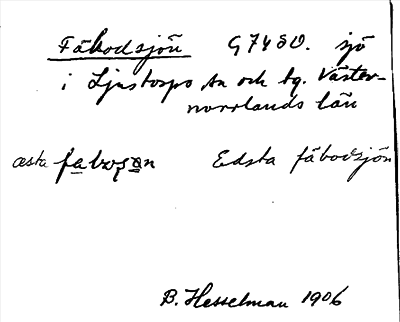 Fäbodsjön G7450. sjö
i Ljustorps sn och tg. Väster-
norrlands län
æsta Edsta fäbodsjön
B. Hesselman 1906